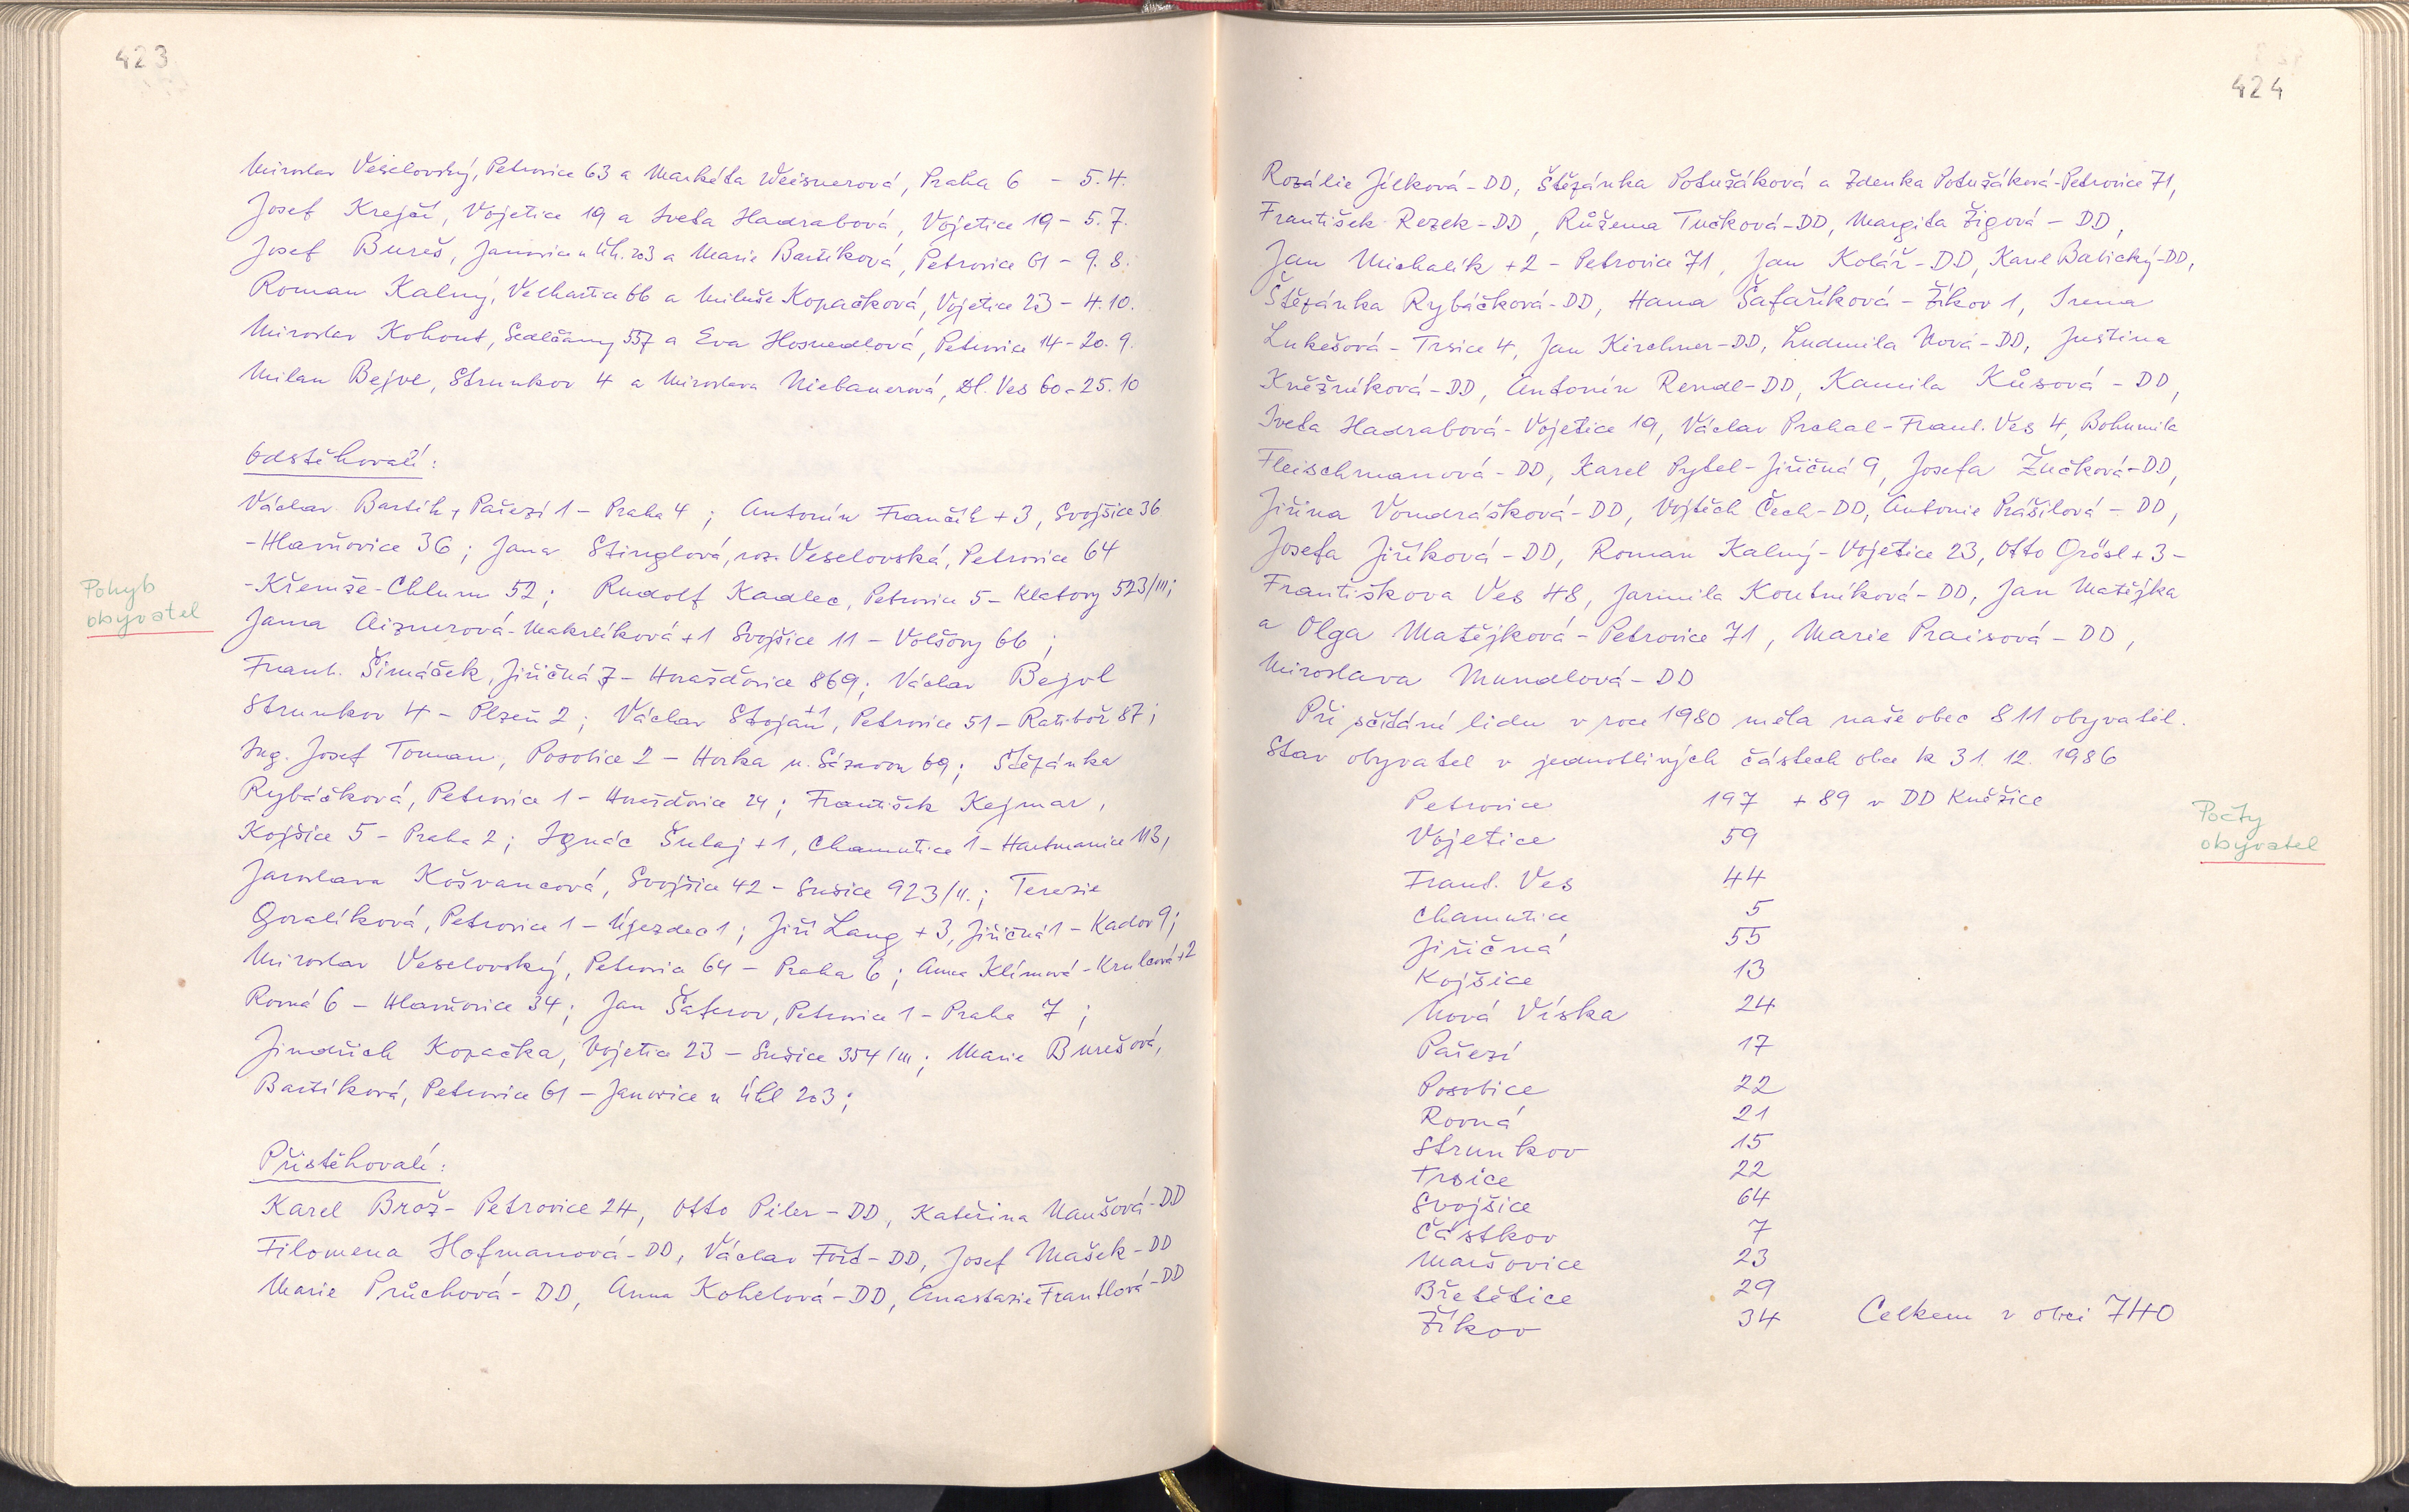 423
Miroslav Veselovský, Petrovice 63 a Markéta Weisnerová, Praha 6 - 5.4.
Josef Krejčí, Vojetice 19 a Iveta Hadrabová, Vojetice 19 - 5.7.
Josef Bureš, Janovice n Úh. 203 a Marie Bartíková, Petrovice 61 - 9.8.
Roman Kalný, Velhartice 66 a Miluše Kopačková, Vojetice 23 - 4.10.
Miroslav Kohout, Sedlčany 557 a Eva Hosnedlová, Petrovice 14 - 20.9.
Milan Bejvl, Strunkov 4 a Miroslava Niebauerová, Dl. Ves 60 - 25.10
Odstěhovalí:
Václav Bartík, Pařezí 1 - Praha 4 ; Antonín Frančík + 3, Svojšice 36
- Hlavňovice 36 ; Jana Stinglová, roz. Veselovská, Petrovice 64
- Křemže-Chlum 52 ; Rudolf Kadlec, Petrovice 5 - Klatovy 523/III ;
Pohyb
obyvatel
Jana Aiznerová-Makrlíková +1 Svojšice 11 - Volšovy 66 ;
Frant. Šimáček, Jiřičná 7 - Horažďovice 869 ; Václav Bejvl
Strunkov 4 - Plzeň 2 ; Václav Stojan +1, Petrovice 51 - Ratiboř 87 ;
Ing. Josef Toman, Posobice 2 - Horka n. Sázavou 69 ; Štěpánka
Rybáčková, Petrovice 1 - Horažďovice 24 ; František Kejmar,
Kojšice 5 - Praha 2 ; Ignác Šulaj +1, Chamutice 1 - Hartmanice 113,
Jaroslava Košvancová, Svojšice 42 - Sušice 923/II. ; Terezie
Goralíková, Petrovice 1 - Újezdec 1 ; Jiří Lang + 3, Jiřičná 1 - Kadov 9 ;
Miroslav Veselovský, Petrovice 64 - Praha 6 ; Anna Klímová - Krulcová +2
Rovná 6 - Hlavňovice 34 ; Jan Šaferov, Petrovice 1 - Praha 7 ;
Jindřich Kopačka, Vojetice 23 - Sušice 354/III ; Marie Burešová,
Bartíková, Petrovice 61 - Janovice n Úhl 203 ;
Přistěhovalí:
Karel Brož - Petrovice 24, Otto Piler - DD, Kateřina Maušová - DD
Filomena Hofmanová - DD, Václav Fořt - DD, Josef Mašek - DD
Marie Průchová - DD, Anna Kohelová - DD, Anastazie Frantlová - DD
424
Rozálie Jílková - DD, Štěpánka Potužáková a Zdenka Potužáková - Petrovice 71,
František Rezek - DD, Růžena Tučková - DD, Margita Žigová - DD,
Jan Michalík +2 - Petrovice 71, Jan Kolář - DD, Karel Babický - DD,
Štěpánka Rybáčková - DD, Hana Šafaříková - Žíkov 1, Irena
Lukešová - Trsice 4, Jan Kirchner - DD, Ludmila Nová - DD, Justina
Kněžníková - DD, Antonín Rendl - DD, Kamila Kůsová - DD,
Iveta Hadrabová - Vojetice 19, Václav Prchal - Frant. Ves 4, Bohumila
Fleischmanová - DD, Karel Pytel - Jiřičná 9, Josefa Žučková - DD,
Jiřina Vondrášková - DD, Vojtěch Čech - DD, Antonie Prášilová - DD,
Josefa Jiříková - DD, Roman Kalný - Vojetice 23, Otto Grösl + 3 -
Františkova Ves 48, Jarmila Koutníková - DD, Jan Matějka
a Olga Matějková - Petrovice 71, Marie Praisová - DD,
Miroslava Mundlová - DD
Při sčítání lidu v roce 1980 měla naše obec 811 obyvatel.
Stav obyvatel v jednotlivých částech obce k 31. 12. 1986
Petrovice 197 + 89 v DD Kněžice
Počty
obyvatel
Vojetice 59
Frant. Ves 44
Chamutice 5
Jiřičná 55
Kojšice 13
Nová Víska 24
Pařezí 17
Posobice 22
Rovná 21
Strunkov 15
Trsice 22
Svojšice 64
Částkov 7
Maršovice 23
Břetětice 29
Žíkov 34 Celkem v obci 740